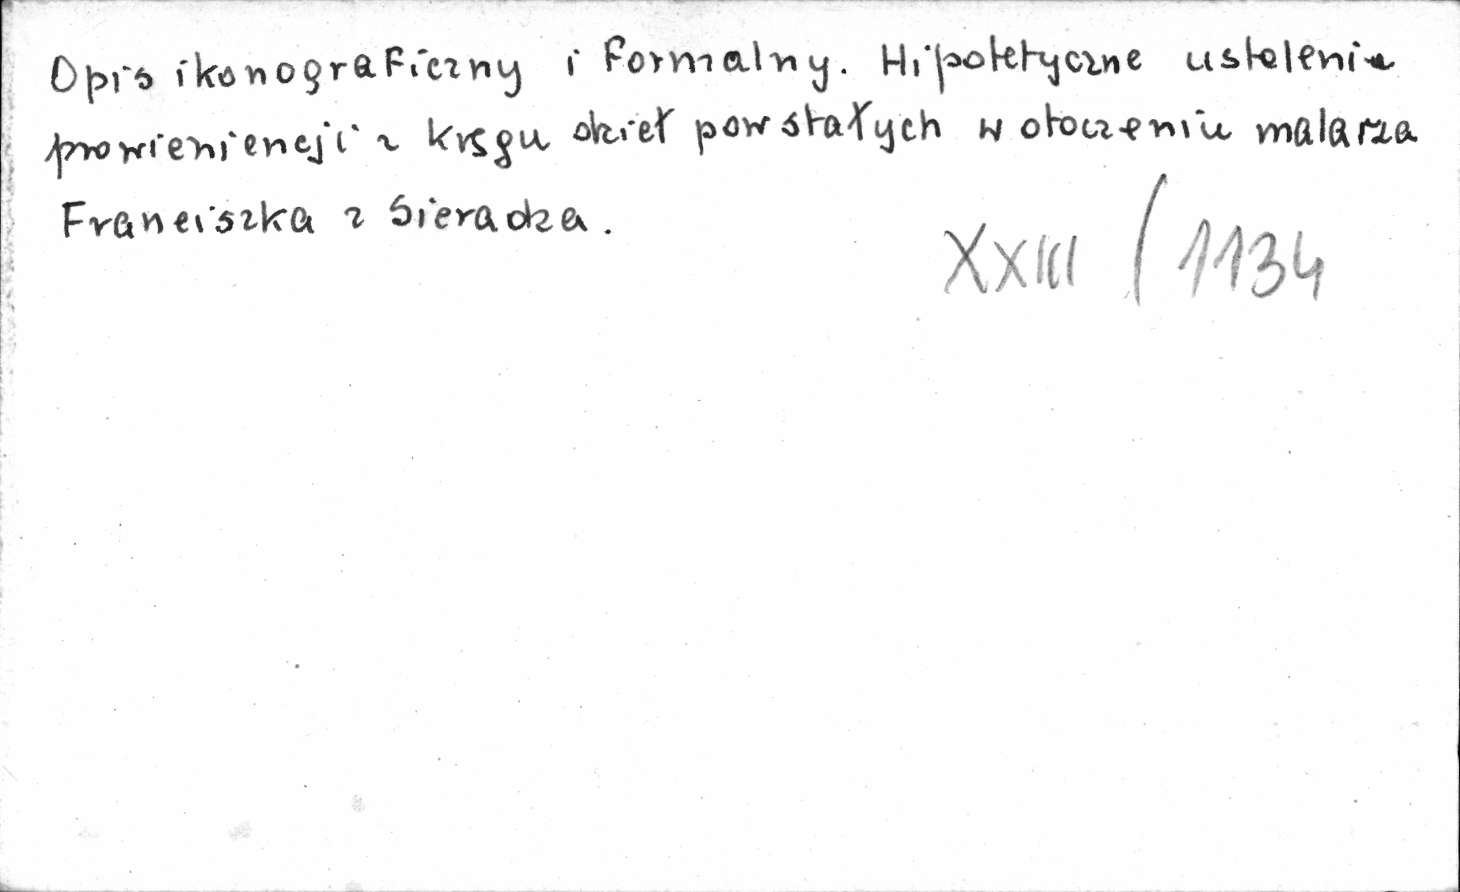 Opis ikonograficzny i formalny. Hipotetyczne ustalenie
prowieniencji z kręgu dzieł powstałych w otoczeniu malarza
Franciszka z Sieradza.
XXIII / 1134